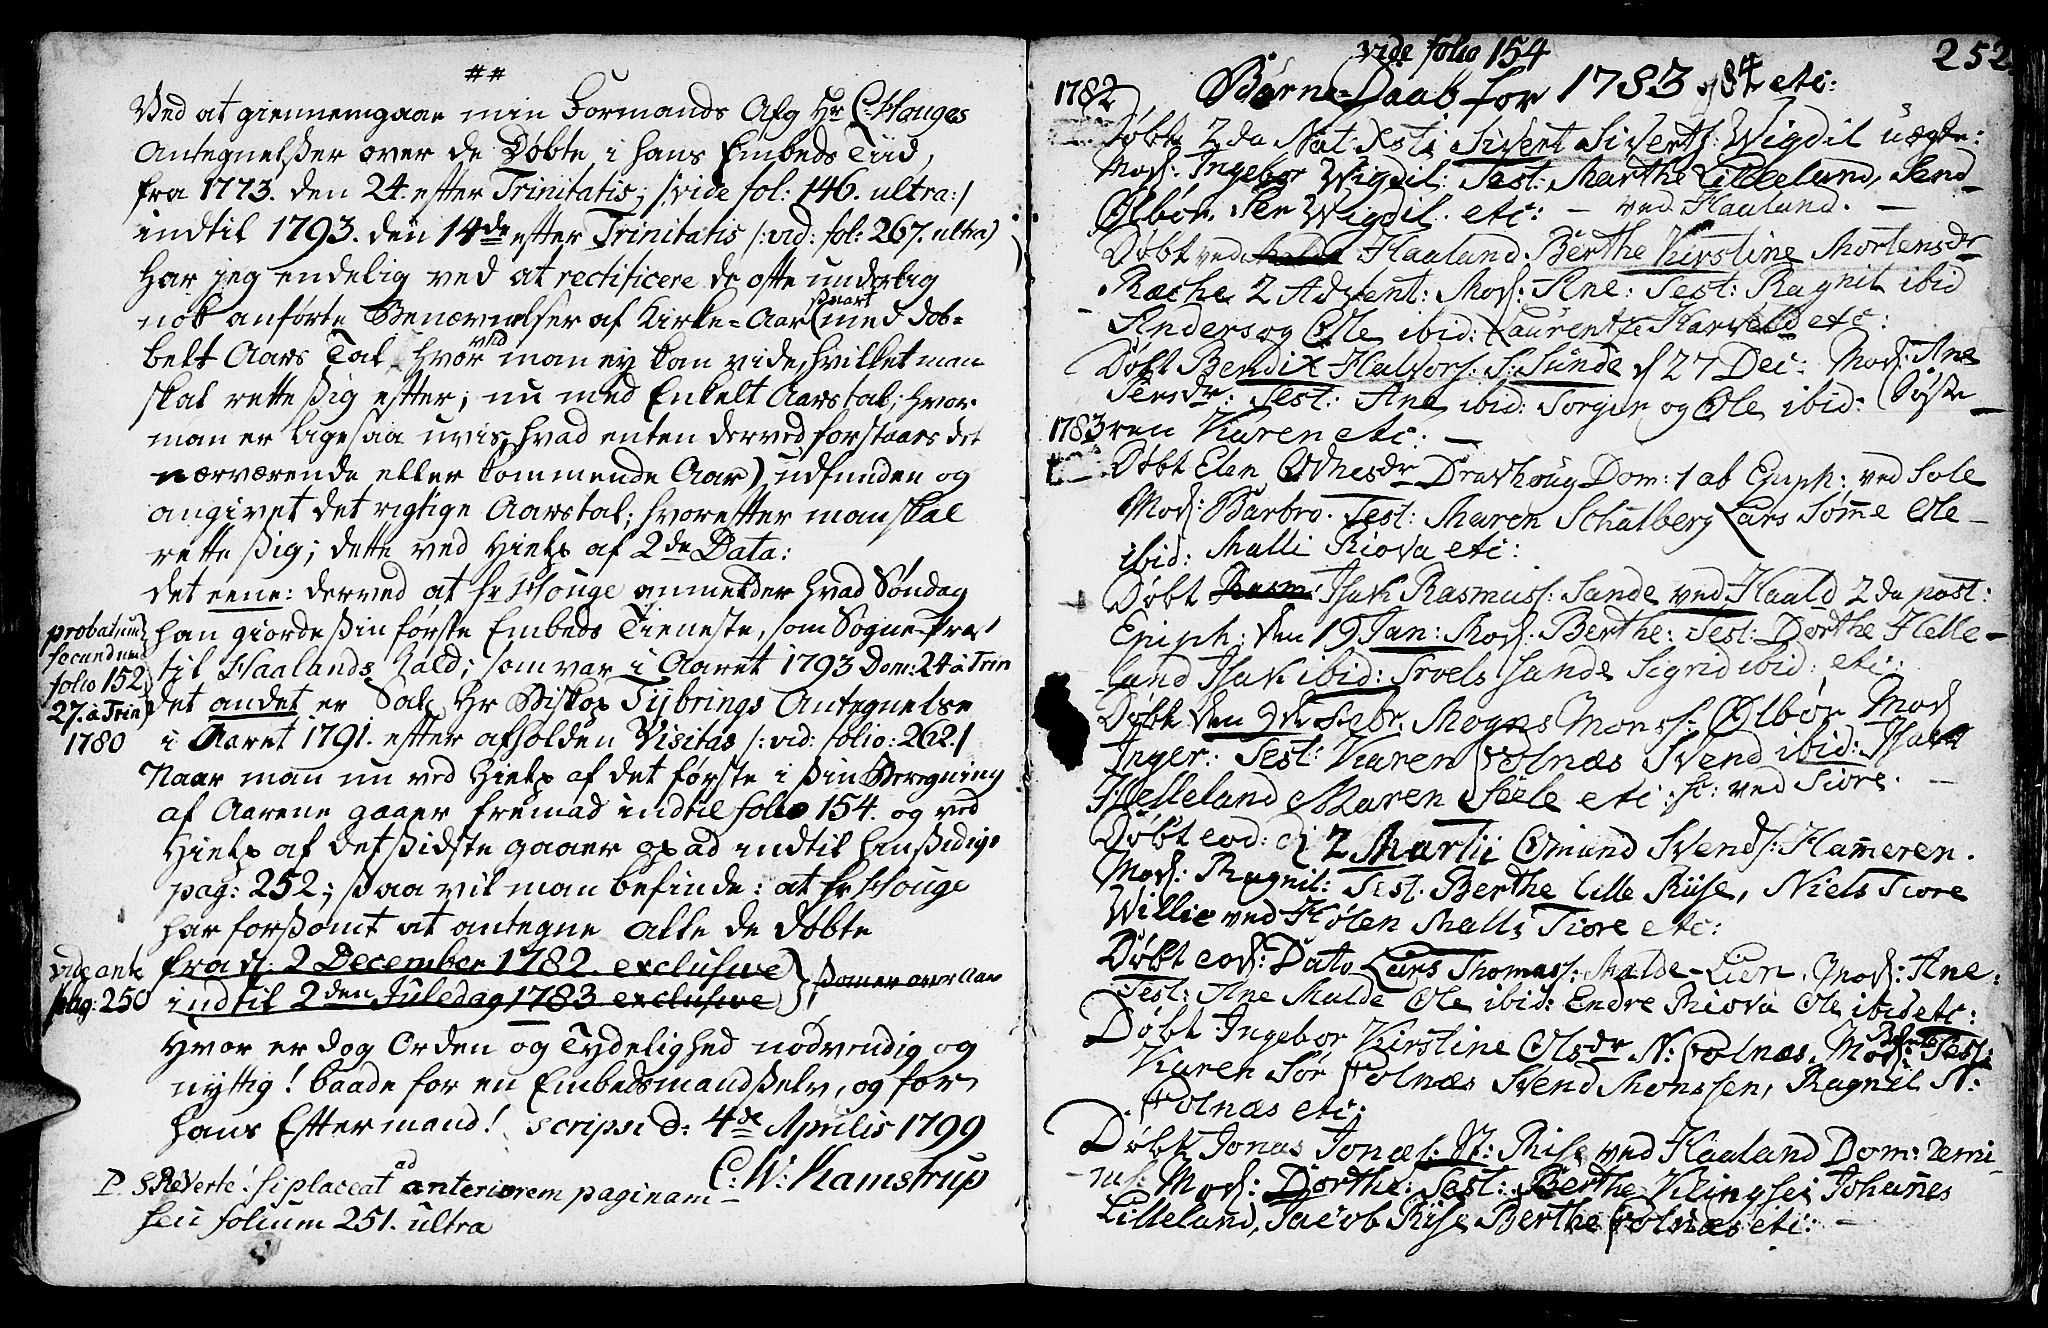 ##
Ved at giennemgaae min Formands Afg Hr C. Houges
Antegnelsser over de Døbte i hans Embeds Tiid,
fra 1773. den 24. efter Trinitatis; /:vide fol: 146. ultra:/
indtil 1793. den 14de efter Trinitatis /:vid: fol: 267. ultra)
har jeg endelig ved at rectificere de ofte underlig
nok anførte Benævnelser af Kirke=Aar (snart med dob=
belt Aars Tal hvor ved man ey kan vide, hvilket man
skal rette sig efter; nu med Enkelt Aarstal; hvor
man er ligesaa uvis, hvad enten derved forstaaes det
nærværende eller kommende Aar) udfunden og
angivet det rigtige Aarstal; hvorefter man skal
rette sig; dette ved Hielp af 2de Data:
det eene: derved at hr Houge anmelder hvad Søndag
han giorde sin første Embeds Tieneste, som Sogne-Præst
til Haalands Kald; som var i Aaret 1793 Dom: 24 à Trin
det andet er Sal. Hr Biskop Tybrings Antegnelse
i Aaret 1791. efter afholden Visitas /:vid: folio: 262:/
probatum
secundum
folio 152
27. à Trin
1780
Naar man nu ved Hielp af det første i sin Beregning
af Aarene gaaer fremad indtil folio 154. og ved
Hielp af det sidste gaaer op ad indtil hensidige
pag: 252; saa vil man befinde: at hr Houge
har forsømt at antegne alle de døbte
fra d. 2 December 1782. exclusive
indtil 2den Juledag 1783 exclusive
vide ante
pag: 250
Hvor er dog Orden og Tydelighed nødvendig og
nyttig! baade for en Embedsmand selv, og for
hans Eftermand! scripsi d: 4de Aprilis 1799
C: W: Kamstrup
P. S Reverte! si placeat ad anteriorem paginam
seu folium 251. ultra
vide folio 154
252
Børne=Daab for 1783 og 84 etc:
1782
Døbt 2da Nat. Xsti Sivert Siverts: Wigdil uægte:
Mod: Ingebor Wigdil: Test: Marthe Lilleland, Svend
Ølbør. Per Wigdil. etc: – ved Haaland. –
Døbt ved Haaland Berthe Kirstine Mortensdr
Ræche 2 Advent: Mod: Ane: Test: Ragnil ibid
Anders og Ole ibid: Laurentze Harveld etc:
Døbt Bendix Halvors: S: Sunde d 27 Dec: Mod: Ane
Persdr: Test: Ane ibid: Torger og Ole ibid: Søste
1783
ren Karen etc: –
Døbt Elen Odnesdr Dravhoug Dom: 1 ab Epiph: ved Sole
Mod: Barbro. Test: Maren Schalberg Lars Sømme Ole
ibid: Malli Riova etc:
Døbt Isak Rasmuss: Sande ved Haald 2da post:
Epiph: den 19 Jan: Mod: Berthe: Test: Dorthe Helle-
land Isak ibid: Troels Sande Sigrid ibid: etc:
Døbt den 9de Febr. Mogns Monss: Ølbør Mod
Inger: Test: Karen Folnæs Svend ibid: Isak
Helleland Maren Seele etc: ved Tiore. –
Døbt eod: d 2 Martii Omund Svends: Hammeren.
Mod: Ragnil: Test: Berthe Lille Riise, Niels Tiore
Willie ved Holen Malli Tiore etc:
Døbt eod: Dato Lars Thomass: Malde-Lien. Mod: Ane:
Test: Ane Malde Ole ibid: Endre Riova Ole ibid etc:
Døbt Ingebor Kirstine Olsdr N: Folnæs. Mod: Test:
Karen Sør Folnæs Svend Monssen, Ragnil N:
Folnæs etc;
Døbt Jonas Jonæs: N: Riise ved Haaland Dom: Remi-
nis: Mod: Dorthe: Test: Berthe Klingsei Johannes
Lilleland, Jacob Riise Berthe Folnæs etc: –